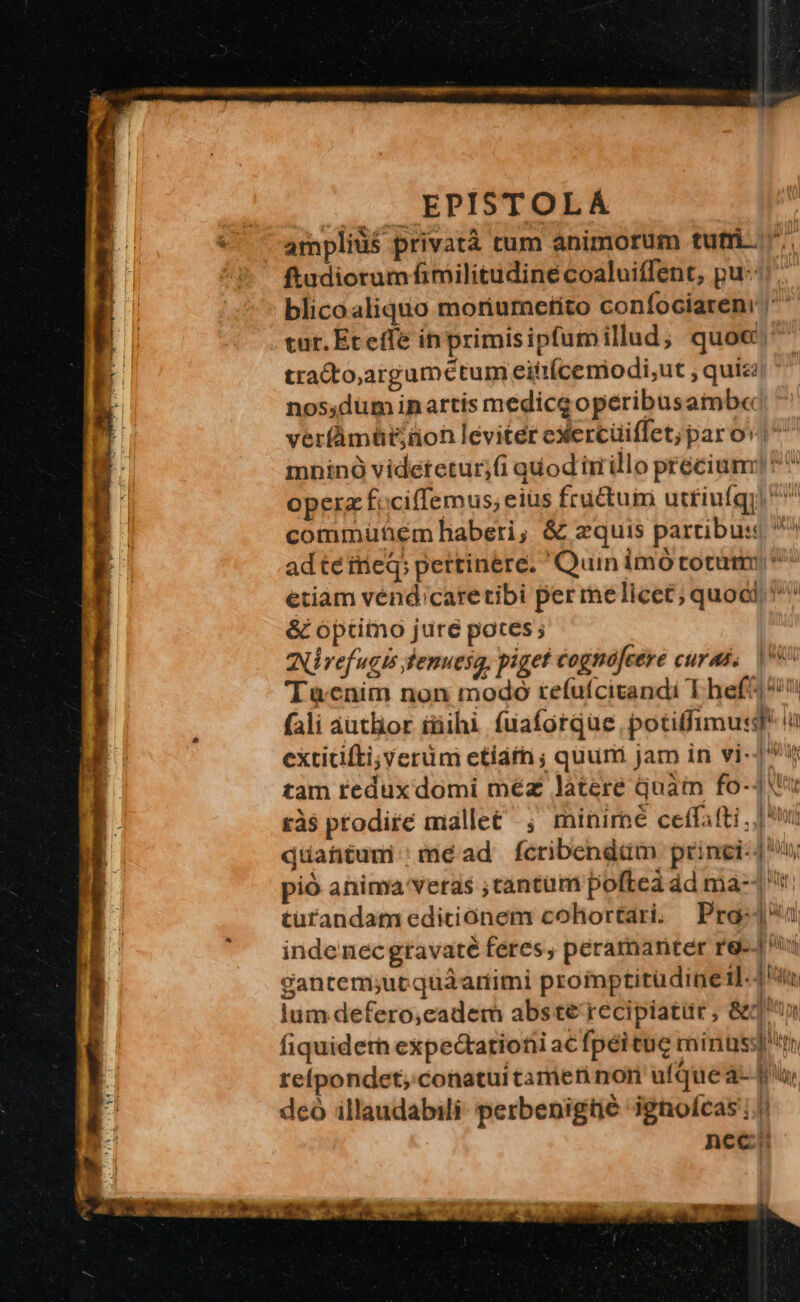 EPISTOLA
ampliùs privatà tum animorum tum
ſtudiorum ſimilitudine coaluiſſent, pu-
blico aliquo monumento conſociaren-
tur. Et eſſe in primis ipſum illud, quod
tracto, argumētum eiuſcemodi, ut, quia
nos, dum in artis medicę operibus ambo
verſamur, non leviter exercuiſſet, par o-
mninò videretur, ſi quod in illo precium
operæ feciſſemus, eius fructum utriuſq;
communem haberi, & æquis partibus
ad te meq; pertinere. Quin imò totum
etiam vendicare tibi per me licet, quod
& optimo jure potes;
Ni refugis tenuesq, piget cognoſcere curas.
Tu enim non modò reſuſcitandi Theſ-
ſali author mihi ſuaſorque potiſſimus
extitiſti, verùm etiam, quum jam in vi-
tam redux domi meæ latere quàm fo-
ràs prodire mallet, minimè ceſſaſti,
quantum me ad ſcribendum princi-
piò animaveras, tantum poſteà ad ma-
turandam editionem cohortari. Pro-
inde nec gravatè feres, peramanter ro-
gantem, ut quâ animi promptitudine il-
lum defero, eadem abs te recipiatur, &
ſiquidem expectationi ac ſpei tuę minus
reſpondet, conatui tamen non uſque a-
deò illaudabili perbenignè ignoſcas;
nec